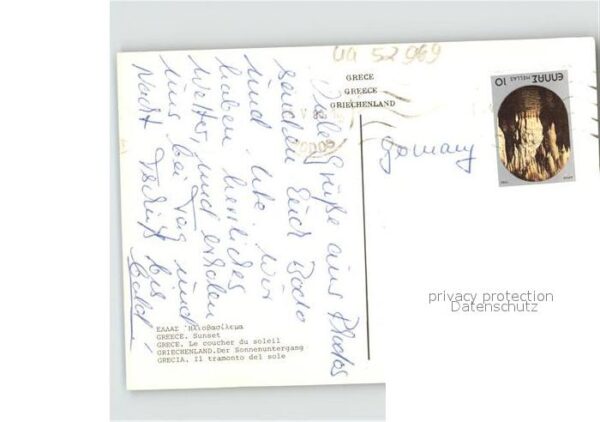 ua 52969
GRECE
GREECE
GRIECHENLAND
ΕΛΛΑΣ HELLAS 10
Viele Grüße aus Rhodos
senden Euch Bodo
und Ute. Wir
haben herrliches
Wetter und erholen
uns bei Tag und
Nacht. Tschüß bis
bald!
Germany
privacy protection
Datenschutz
ΕΛΛΑΣ Ἡλιοβασίλεμα
GREECE. Sunset
GRECE. Le coucher du soleil
GRIECHENLAND. Der Sonnenuntergang
GRECIA. Il tramonto del sole